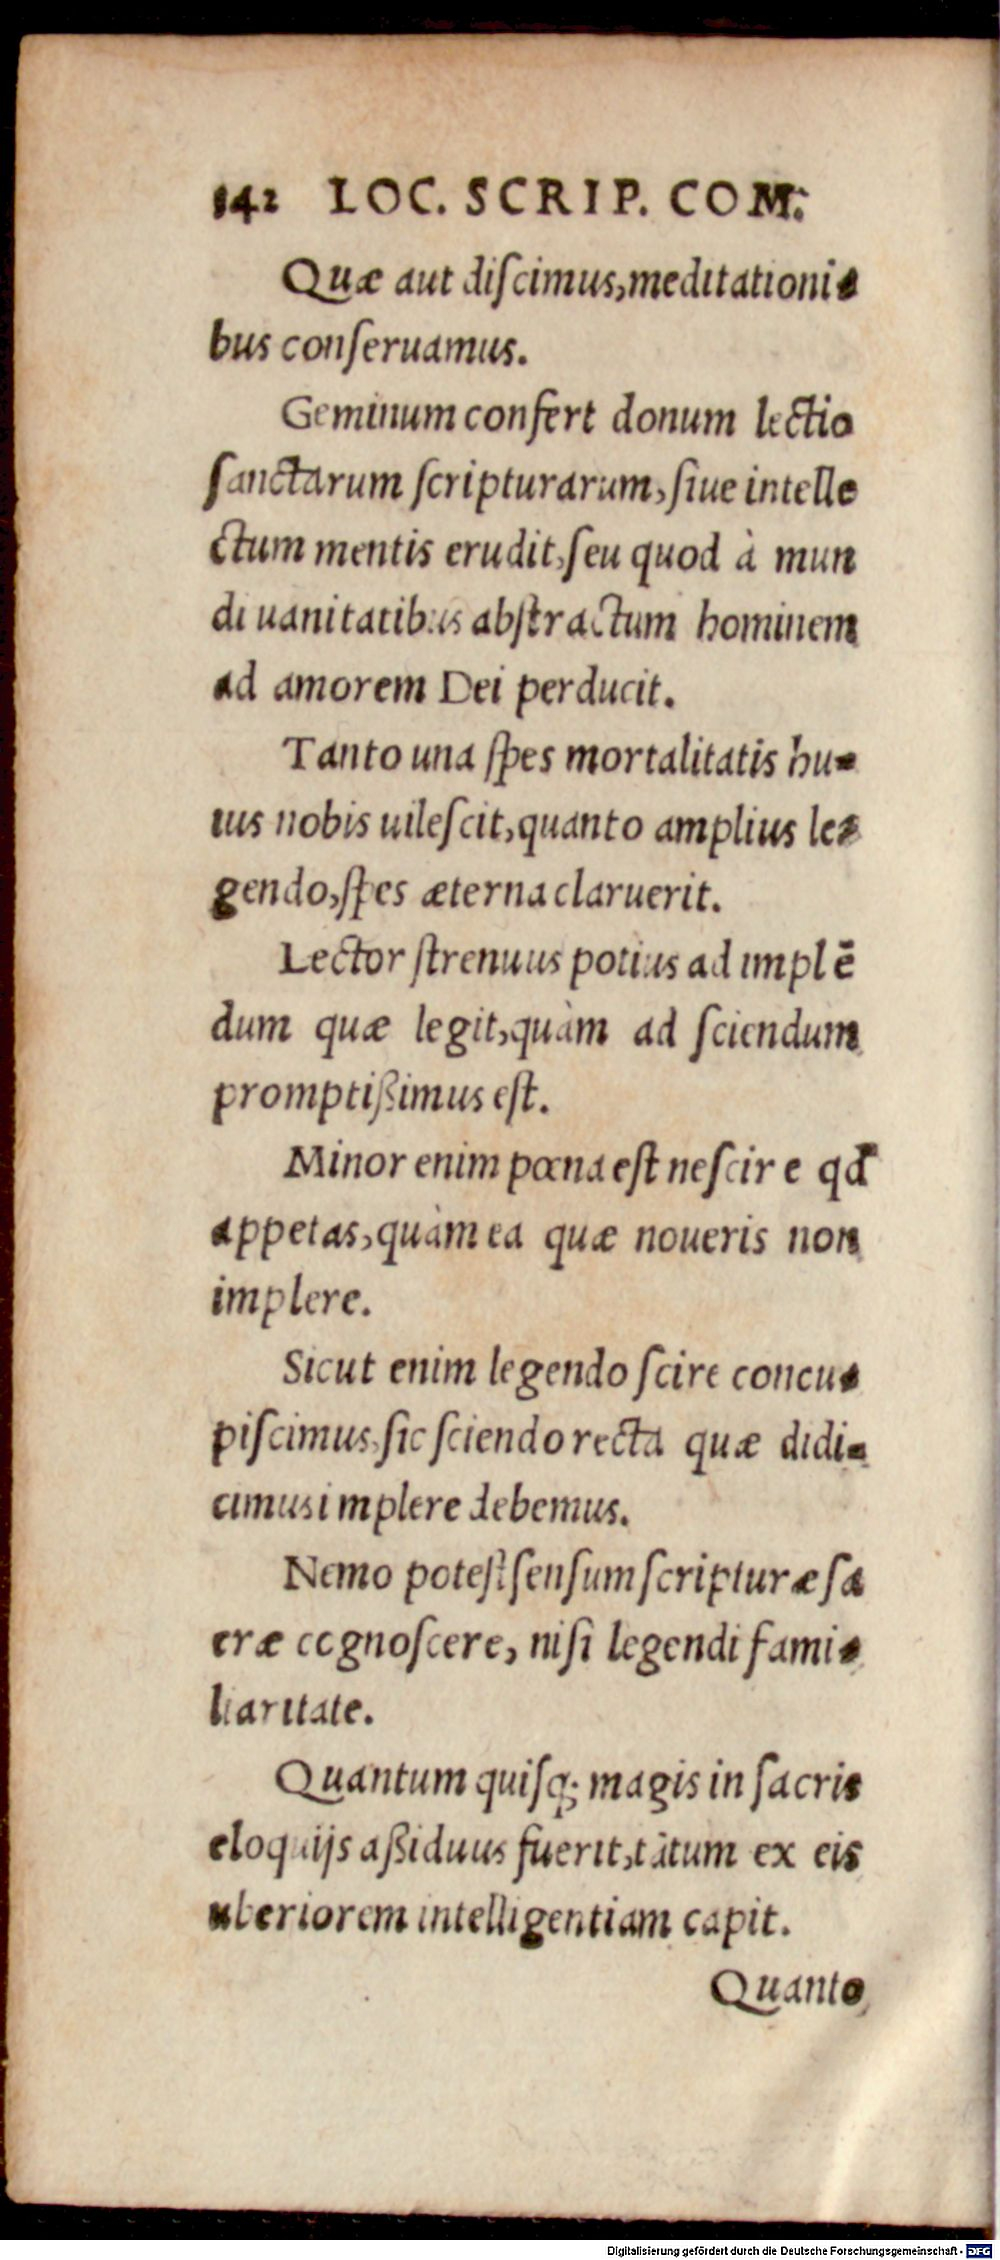 142 LOC. SCRIP. COM.
Quæ aut diſcimus, meditationi-
bus conſeruamus.
Geminum confert donum lectio
ſanctarum ſcripturarum, ſiue intelle
ctum mentis erudit, ſeu quod à mun
di uanitatibus abſtractum hominem
ad amorem Dei perducit.
Tanto una ſpes mortalitatis hu-
ius nobis uileſcit, quanto amplius le-
gendo, ſpes æterna claruerit.
Lector ſtrenuus potius ad implē
dum quæ legit, quàm ad ſciendum
promptißimus eſt.
Minor enim pœna eſt neſcire qd̃
appetas, quàm ea quæ noueris non
implere.
Sicut enim legendo ſcire concu-
piſcimus, ſic ſciendo recta quæ didi-
cimus implere debemus.
Nemo poteſt ſenſum ſcripturæ ſa
cræ cognoſcere, niſi legendi fami-
liaritate.
Quantum quiſq; magis in ſacris
eloquijs aßiduus fuerit, tãtum ex eis
uberiorem intelligentiam capit.
Quanto
Digitalisierung gefördert durch die Deutsche Forschungsgemeinschaft - DFG